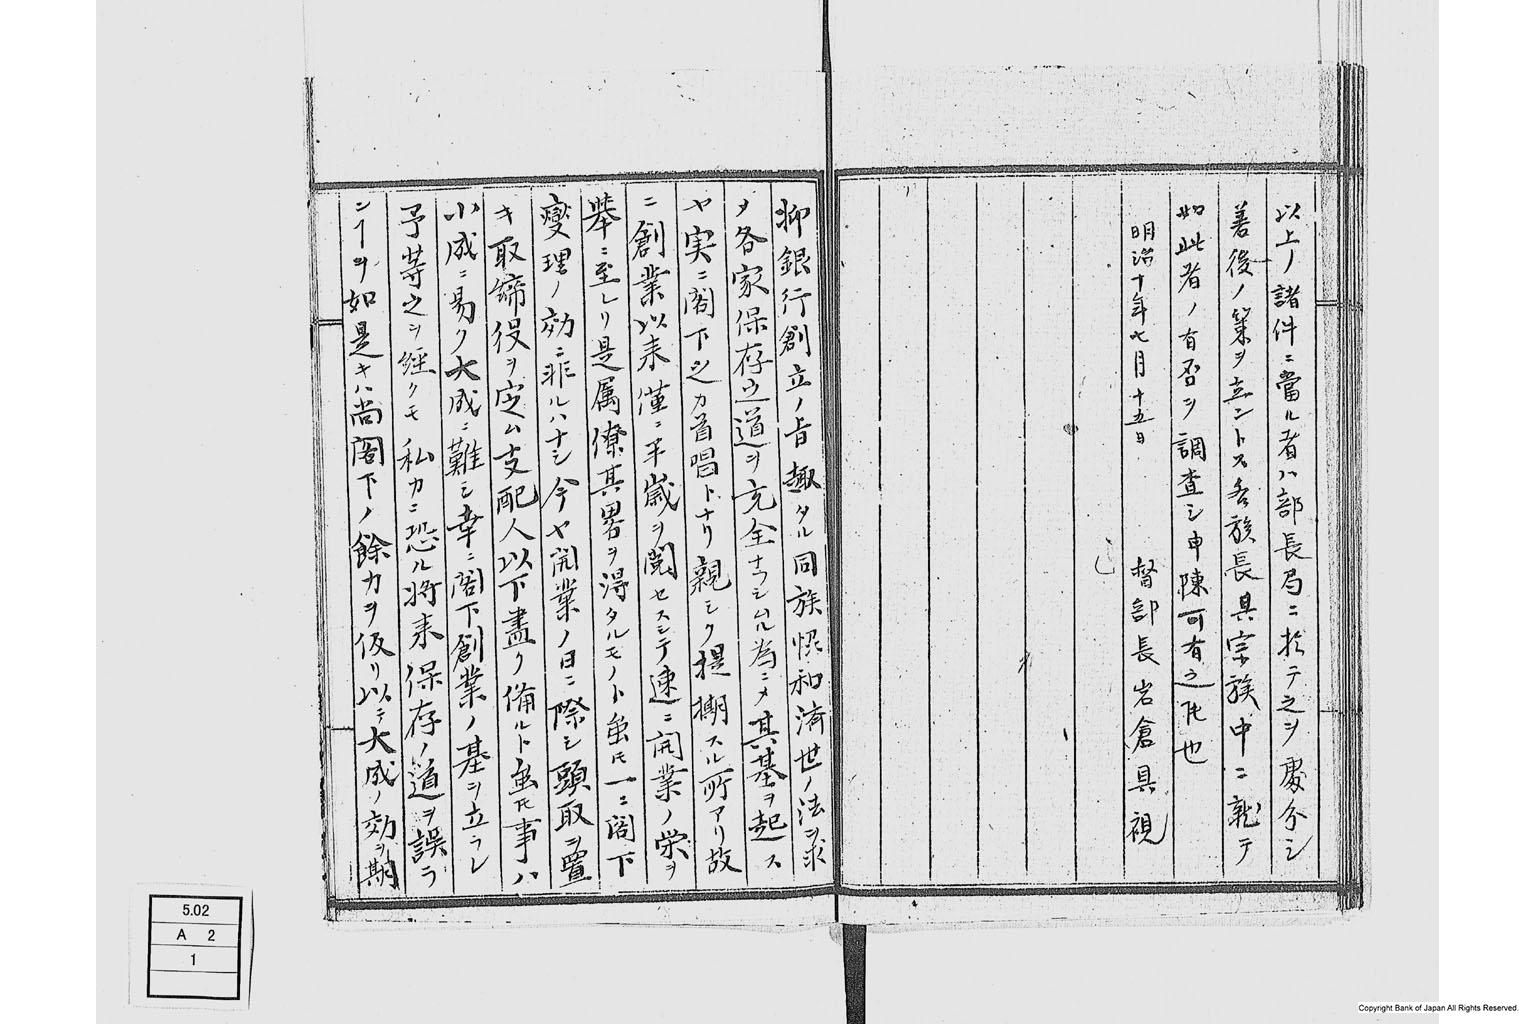 以上ノ諸件ニ當ル者ハ部長局ニ於テ之ヲ處分シ
善後ノ策ヲ立ントス各族長具宗族中ニ就テ
如此者ノ有否ヲ調査シ申陳可有之候也
明治十年七月十五日
督部長岩倉具視
抑銀行創立ノ旨趣タル同族協和済世ノ法ヲ求
メ各家保存之道ヲ充全ナラシムル為ニメ其基ヲ起ス
ヤ実ニ閣下之カ首唱トナリ親シク提撕スル所アリ故
ニ創業以来僅ニ半歳ヲ閲セスシテ速ニ開業ノ栄ヲ
挙ニ至レリ是属僚其畧ヲ得タルモノト虽モ一ニ閣下
燮理ノ効ニ非ルハナシ今ヤ開業ノ日ニ際シ頭取ヲ置
キ取締役ヲ定ム支配人以下盡ク備ルト虽モ事ハ
小成ニ易ク大成ニ難シ幸ニ閣下創業ノ基ヲ立ラレ
予等之ヲ經クモ私カニ恐ル将来保存ノ道ヲ誤ラ
ンヿヲ如是キハ尚閣下ノ餘力ヲ仮リ以テ大成ノ効ヲ期
5.02
A 2
1
Copyright Bank of Japan All Rights Reserved.